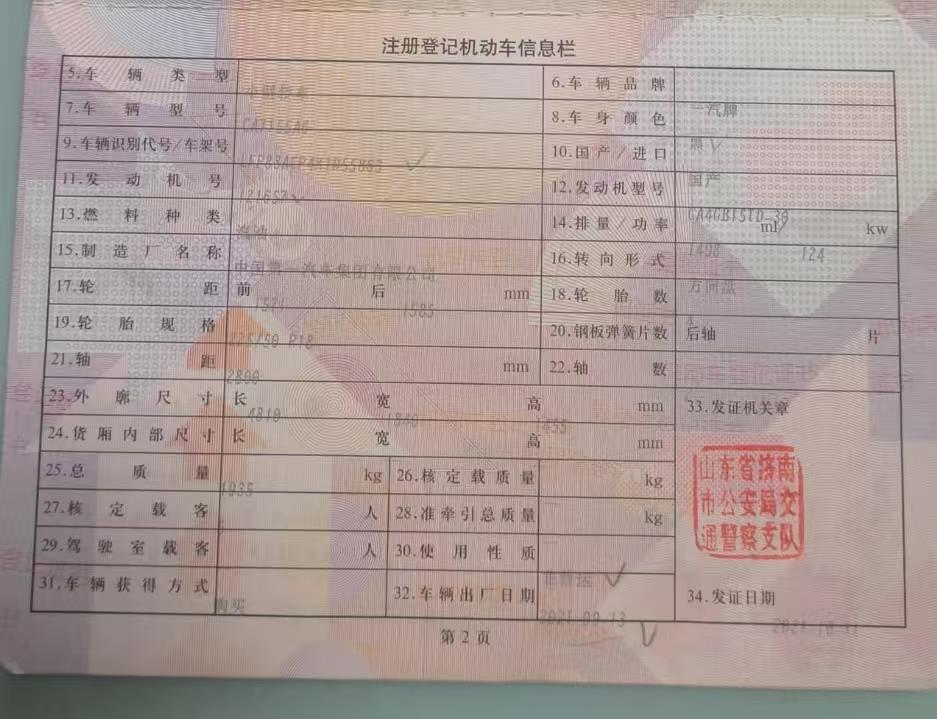 注册登记机动车信息栏
5.车辆类型 小型轿车 6.车辆品牌 一汽牌
7.车辆型号 8.车身颜色 黑
9.车辆识别代号/车架号 10.国产/进口 国产
11.发动机号 12.发动机型号 CA4GB15TD-30
13.燃料种类 汽油 14.排量/功率 1498 ml/ 124 kw
15.制造厂名称 中国第一汽车集团有限公司 16.转向形式 方向盘
17.轮距 前 后 1585 mm 18.轮胎数
19.轮胎规格 225/50 R18 20.钢板弹簧片数 后轴 片
21.轴距 2800 mm 22.轴数
23.外廓尺寸 长 4810 宽 1840 高 1455 mm 33.发证机关章
24.货厢内部尺寸 长 宽 高 mm
25.总质量 1935 kg 26.核定载质量 kg
山东省济南
市公安局交
通警察支队
27.核定载客 人 28.准牵引总质量 kg
29.驾驶室载客 人 30.使用性质 非营运
31.车辆获得方式 购买 32.车辆出厂日期 2021-09-13 34.发证日期
第 2 页